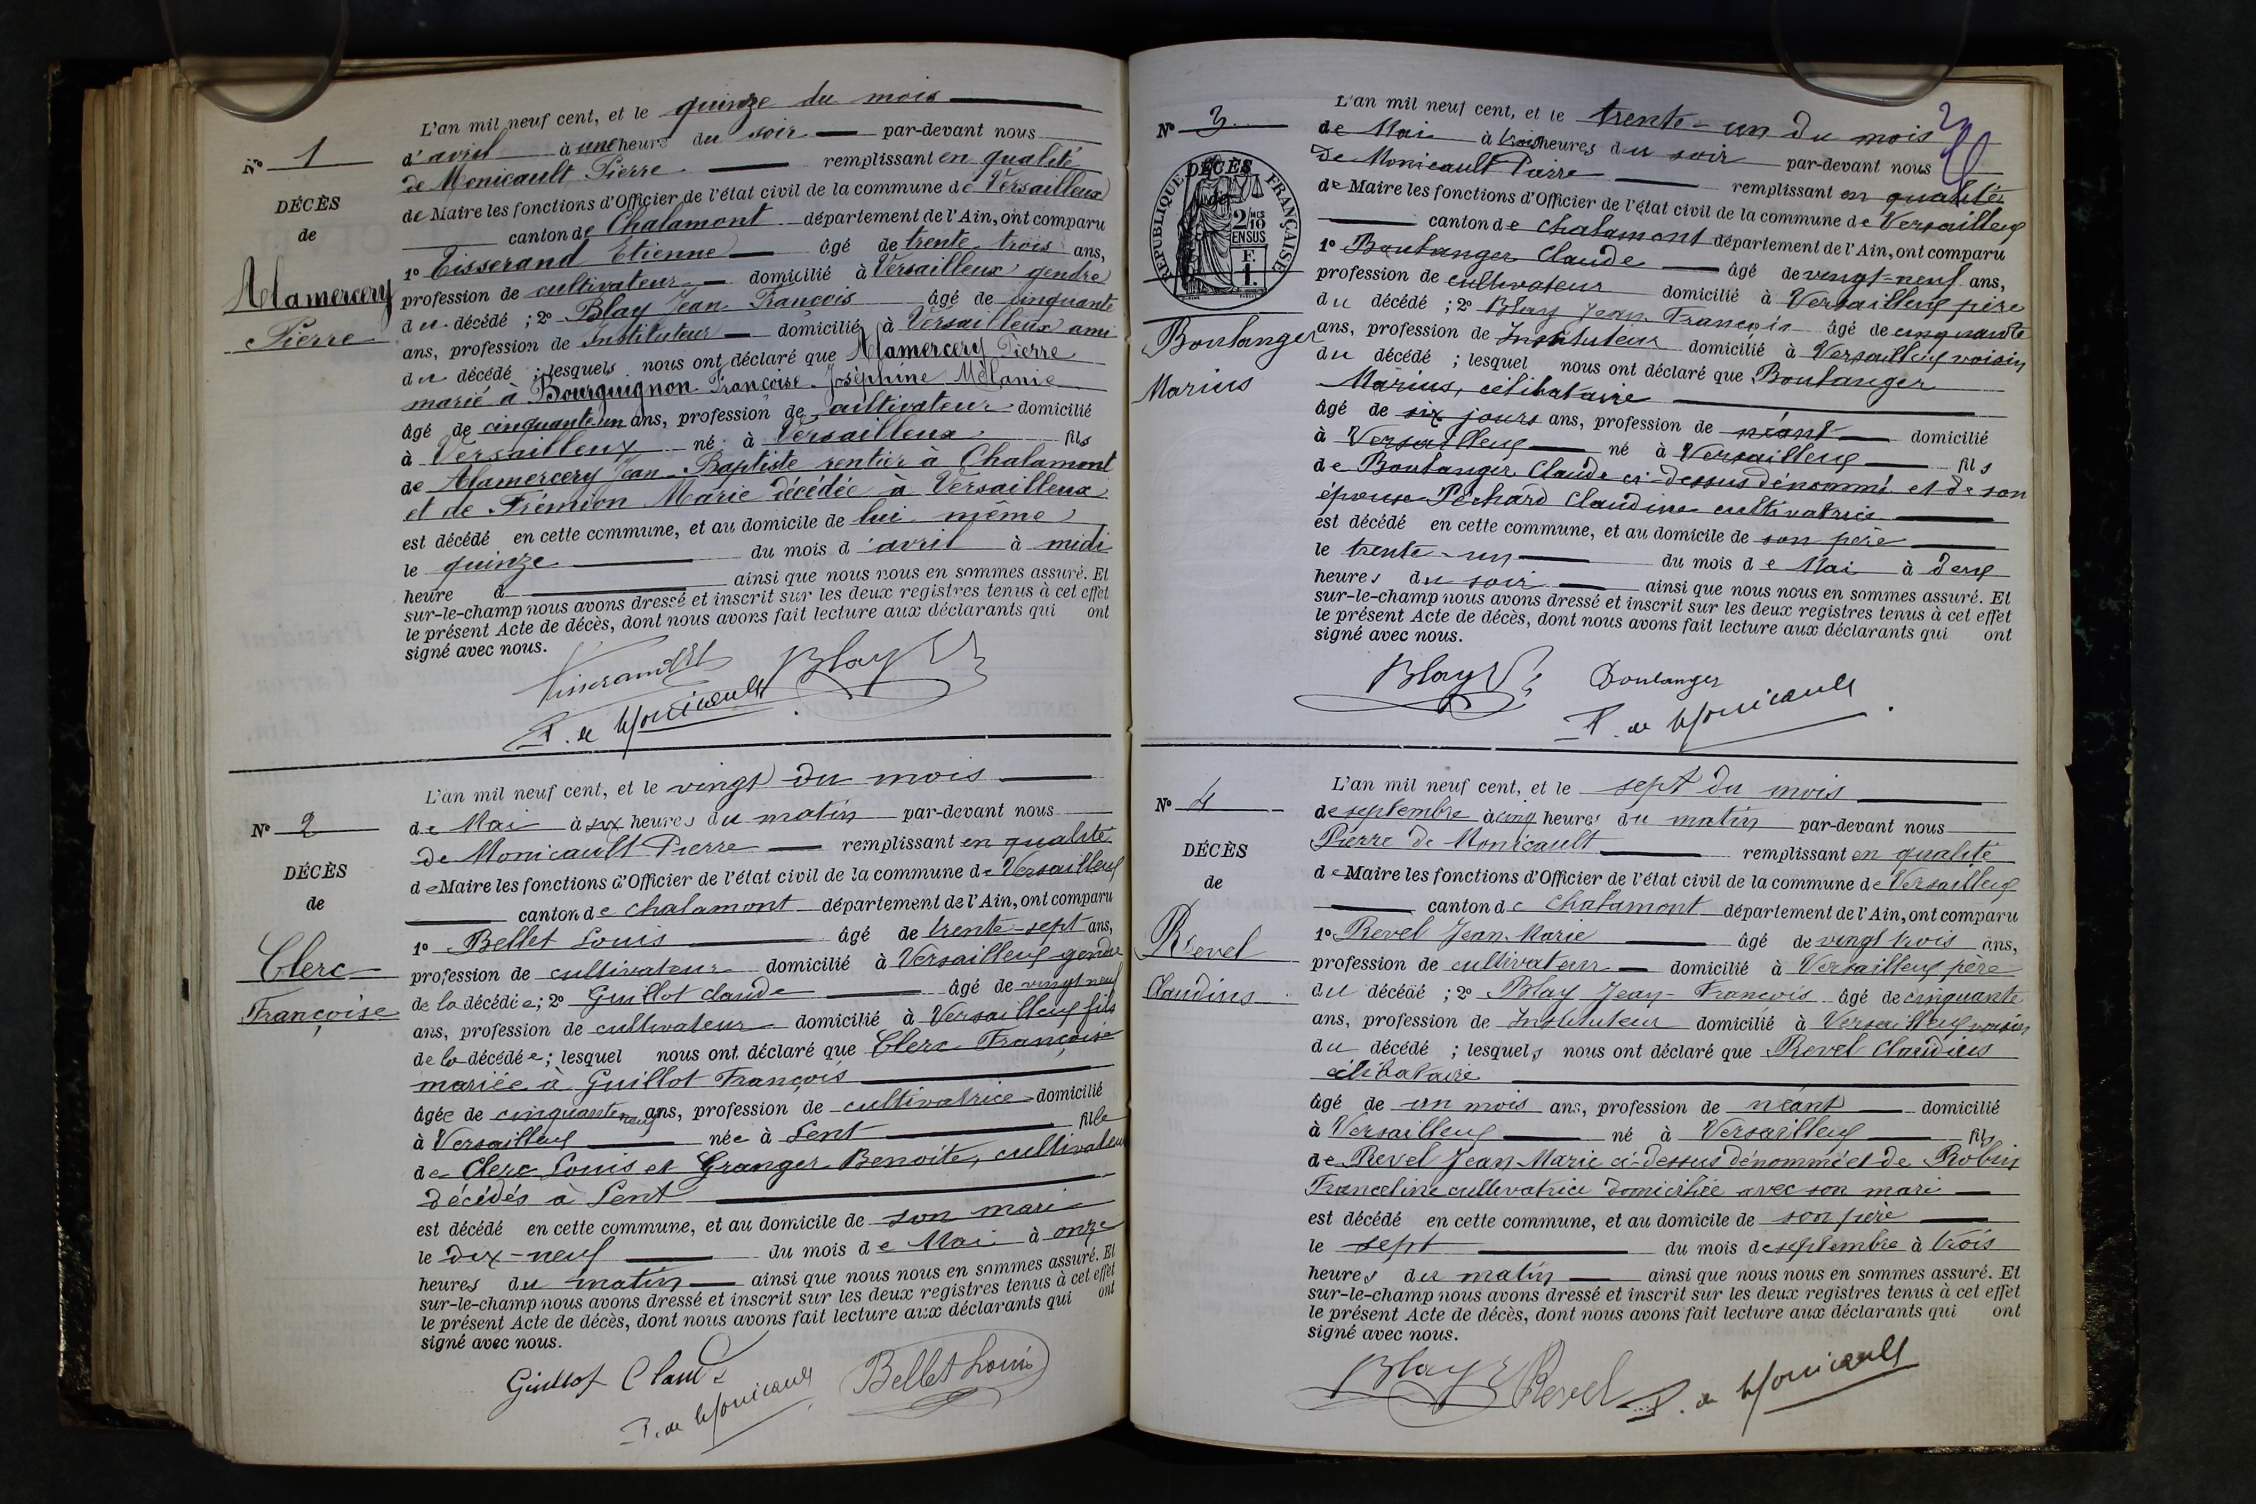 L'an mil neuf cent, et le quinze du mois
Nº 1
d'avril à une heure du soir par-devant nous
de Monicault Pierre remplissant en qualité
DÉCÈS
de Maire les fonctions d'Officier de l'état civil de la commune de Versailleux
de
canton de Chalamont département de l'Ain, ont comparu
1º Tisserand Etienne âgé de trente-trois ans,
Alamercery
profession de cultivateur domicilié à Versailleux gendre
Pierre
du décédé ; 2º Blay Jean François âgé de cinquante
ans, profession de Instituteur domicilié à Versailleux ami
du décédé ; lesquels nous ont déclaré que Alamercery Pierre
marié à Bourguignon Françoise Joséphine Mélanie
âgé de cinquante un ans, profession de cultivateur domicilié
à Versailleux né à Versailleux fils
de Alamercery Jean-Baptiste rentier à Chalamont
et de Frémion Marie décédée à Versailleux
est décédé en cette commune, et au domicile de lui-même
le quinze du mois d'avril à midi
heure d ainsi que nous nous en sommes assuré. Et
sur-le-champ nous avons dressé et inscrit sur les deux registres tenus à cet effet
le présent Acte de décès, dont nous avons fait lecture aux déclarants qui ont
signé avec nous.
Tisserand Et Blay
P. de Monicault
L'an mil neuf cent, et le vingt du mois
Nº 2
de Mai à six heures du matin par-devant nous
de Monicault Pierre remplissant en qualité
DÉCÈS
de Maire les fonctions d'Officier de l'état civil de la commune de Versailleux
de
canton de Chalamont département de l'Ain, ont comparu
1º Bellet Louis âgé de trente-sept ans,
Clerc
profession de cultivateur domicilié à Versailleux gendre
Françoise
de la décédée; 2º Guillot Claude âgé de vingt neuf
ans, profession de cultivateur domicilié à Versailleux fils
de la décédée; lesquel nous ont déclaré que Clerc Françoise
mariée à Guillot François
âgée de cinquante neuf ans, profession de cultivatrice domicilié
à Versailleux née à Lent fille
de Clerc Louis et Granger Benoite, cultivateurs
décédés à Lent
est décédé en cette commune, et au domicile de son mari
le dix-neuf du mois de Mai à onze
heures du matin ainsi que nous nous en sommes assuré. Et
sur-le-champ nous avons dressé et inscrit sur les deux registres tenus à cet effet
le présent Acte de décès, dont nous avons fait lecture aux déclarants qui ont
signé avec nous.
Guillot Claude Bellet Louis
P. de Monicault
L'an mil neuf cent, et le trente-un du mois
Nº 3
de Mai à trois heures du soir par-devant nous
de Monicault Pierre remplissant en qualité
DÉCÈS
de
RÉPUBLIQUE FRANÇAISE
2/10 EN SUS
F. 1.
de Maire les fonctions d'Officier de l'état civil de la commune de Versailleux
canton de Chalamont département de l'Ain, ont comparu
1º Boulanger Claude âgé de vingt-neuf ans,
profession de cultivateur domicilié à Versailleux père
du décédé ; 2º Blay Jean François âgé de cinquante
Boulanger
ans, profession de Instituteur domicilié à Versailleux voisin
Marius
du décédé ; lesquel nous ont déclaré que Boulanger
Marius, célibataire
âgé de six jours ans, profession de néant domicilié
à Versailleux né à Versailleux fils
de Boulanger Claude ci-dessus dénommé et de son
épouse Pochard Claudine cultivatrice
est décédé en cette commune, et au domicile de son père
le trente-un du mois de Mai à deux
heures du soir ainsi que nous nous en sommes assuré. Et
sur-le-champ nous avons dressé et inscrit sur les deux registres tenus à cet effet
le présent Acte de décès, dont nous avons fait lecture aux déclarants qui ont
signé avec nous.
Blay Boulanger
P. de Monicault
L'an mil neuf cent, et le sept du mois
Nº 4
de septembre à cinq heures du matin par-devant nous
Pierre de Monicault remplissant en qualité
DÉCÈS
de Maire les fonctions d'Officier de l'état civil de la commune de Versailleux
de
canton de Chalamont département de l'Ain, ont comparu
1º Revel Jean-Marie âgé de vingt trois ans,
Revel
profession de cultivateur domicilié à Versailleux père
Claudius
du décédé ; 2º Blay Jean-François âgé de cinquante
ans, profession de Instituteur domicilié à Versailleux voisin
du décédé ; lesquels nous ont déclaré que Revel Claudius
célibataire
âgé de un mois ans, profession de néant domicilié
à Versailleux né à Versailleux fils
de Revel Jean Marie ci-dessus dénommé et de Robin
Franceline cultivatrice domiciliée avec son mari
est décédé en cette commune, et au domicile de son père
le sept du mois de septembre à trois
heures du matin ainsi que nous nous en sommes assuré. Et
sur-le-champ nous avons dressé et inscrit sur les deux registres tenus à cet effet
le présent Acte de décès, dont nous avons fait lecture aux déclarants qui ont
signé avec nous.
Blay Revel P. de Monicault